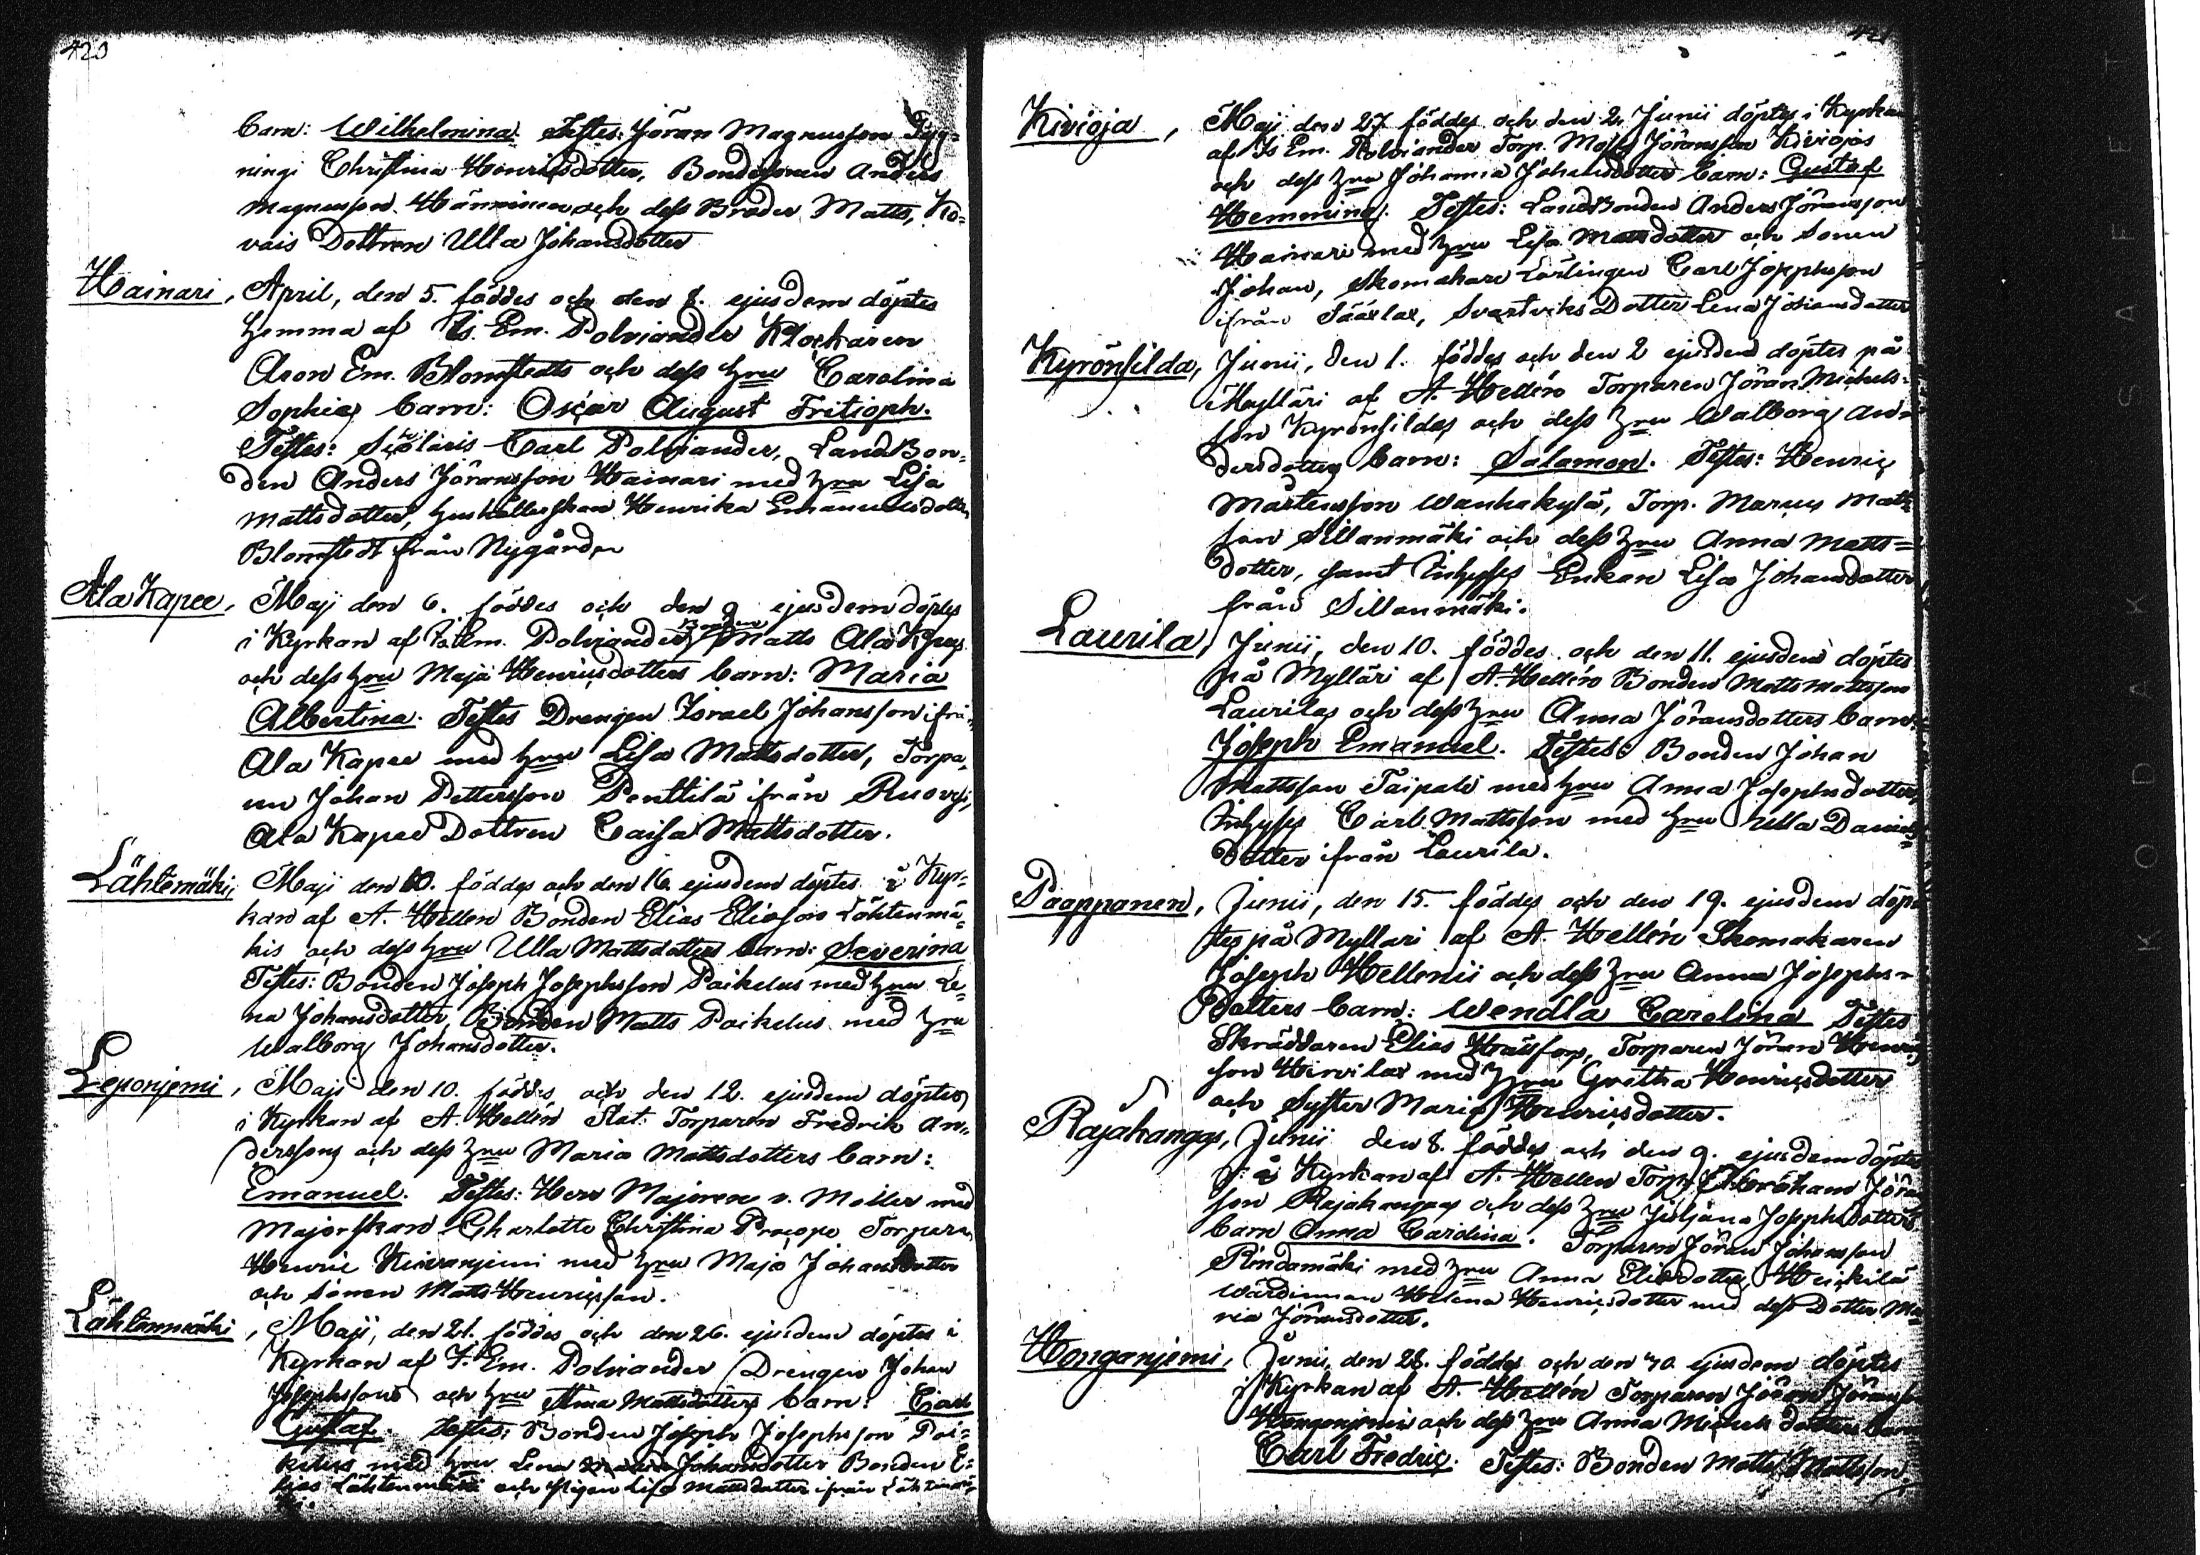 420
barn: Wilhelmina. Testes: Jöran Magnusson
ningi Christina Henricsdotter, Bondesonen Anders
Magnusson Hänninen och dess Broder Matts, Ko-
vais Dottren Ulla Johansdotter
Hainari, April, den 5. föddes och den 8. ejusdem döptes
hemma af Is. Em. Polviander Klockaren
Aron Em. Blomstedts och dess hru Carolina
Sophies barn: Oscar August Fritioph.
Testes: Scolaris Carl Polviander, LandBon-
den Anders Jöransson Hainari med hru Lisa
Mattsdotter, hushållerskan Henrika Emanuelsdotter
Blomstedt från Nygården
Ala Kapee, Maji den 6. föddes och den 9 ejusdem döptes
i Kyrkan af Is. Em. Polviander Bonden Matts Ala Kapees
och dess hru Maja Henricsdotters barn: Maria
Albertina. Testes Drengen Israel Johansson ifrån
Ala Kapee med hru Lisa Mattsdotter, Torpa-
ren Johan Pettersson Penttilä ifrån Ruovesi,
Ala Kapee Dottren Caisa Mattsdotter.
Lähtemäki, Maji den 10. föddes och den 16 ejusdem döptes i Kyr-
kan af A. Hellen Bonden Elias Eliasson Lähtenmä-
kis och dess hru Ulla Mattsdotters barn: Severina
Testes: Bonden Joseph Josephsson Paikelus med hru Le-
na Johansdotter, Bonden Matts Paikelus med hru
Walborg Johansdotter.
Leponjemi, Maji den 10. föddes och den 12. ejusdem döptes
i Kyrkan af A. Hellén Stat. Torparen Fredrik An-
derssons och dess hru Maria Mattsdotters barn:
Emanuel. Testes: Herr Majoren v. Möller med
Majorskan Charlotta Christina Procope Torparen
Henric Keivanjemi med hru Maja Johansdotter
och sonen Matts Henricsson.
Lähtenmäki, Maji, den 21. föddes och den 26. ejusdem döptes i
Kyrkan af I. Em. Polviander Drengen Johan
Josephssons och hru Stina Mattsdotters barn: Carl
Gustaf. Testes: Bonden Joseph Josephsson Pai-
kelus med hru Lena Johansdotter Bonden E-
lias Lähtenmäki och Pigan Lisa Mattsdotter ifrån Lähtenmä-
ki.
421
Kivioja, Maji den 27 föddes och den 2. Junii döptes i Kyrkan
af Is Em. Polviander Torp. Matts Jöransson Kiviojas
och dess hru Johanna Johansdotters barn: Gustaf
Hemming. Testes: LandBonden Anders Jöransson
Hainari med hru Lisa Mattsdotter och Sonen
Johan, Skomakare Lärlingen Carl Josephsson
ifrån Säärlax, Svartviks Dotter Lena Johansdotter
Kyrönsilda, Junii, den 1. föddes och den 2 ejusdem döptes på
Mylläri af A. Hellén Torparen Jöran Michels-
son Kyrönsildas och dess hru Walborg An-
dersdotters barn: Salamon. Testes: Henric
Mårtensson Wanhakylä, Torp. Marcus Matts-
son Sillanmäki och dess hru Anna Matts-
dotter, samt Inhyses Enkan Lisa Johansdotter
från Sillanmäki.
Laurila, Junii, den 10. föddes och den 11. ejusdem döptes
på Mylläri af A. Hellén Bonden Matts Mattsson
Laurilas och dess hru Anna Jöransdotters barn:
Joseph Emanuel. Testes: Bonden Johan
Mattsson Taipale med hru Anna Josephsdotter,
Inhyses Carl Mattsson med hru Ulla Daniels-
dotter ifrån Laurila.
Paapponen, Junii, den 15. föddes och den 19. ejusdem döp-
tes på Myllari af A. Hellén Skomakaren
Joseph Hellenii och dess hru Anna Josephs-
dotters barn: Wendla Carolina Testes
Skräddaren Elias Torparen Jöran Henric-
son Hirvilax med hru Gretha Henricsdotter
och Syster Maria Henricsdotter.
Rajakangas, Junii den 8. föddes och den 9. ejusdem döptes
i Kyrkan af A. Hellen Torp. Abraham Jörans-
son Rajakangas och dess hru Juliana Josephsdotters
barn Anna Carolina. Torparen Jöran Johansson
Rindamäki med hru Anna Eliedotter, Heickilä
wärdinnan Helena Henricsdotter med dess Dotter Ma-
ria Jöransdotter.
Honganjemi, Junii, den 28. föddes och den 30. ejusdem döptes
i Kyrkan af A. Hellén Torparen Jöran Jöransson
Honganjemi och dess hru Anna Michelsdotters barn
Carl Fredric. Testes: Bonden Matts Mattsson
KODAK SAFET